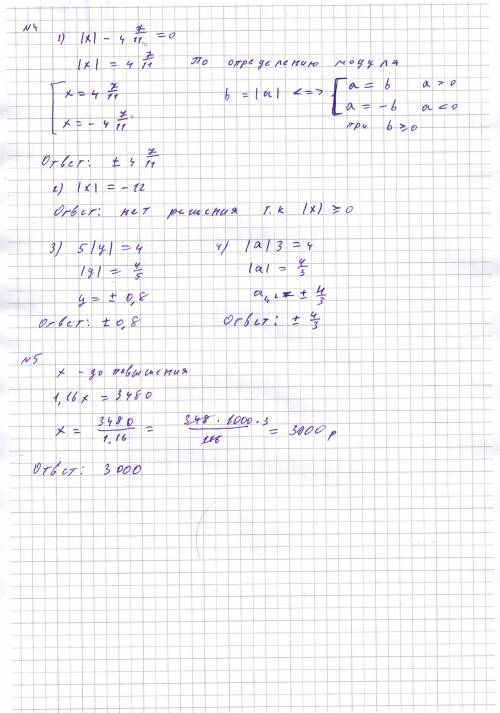 №4
1) |x| - 4 7/11 = 0
|x| = 4 7/11 По определению модула
x = 4 7/11
x = - 4 7/11
b = |a| <=> a = b a > 0
a = -b a < 0
при b ≥ 0
Ответ: ± 4 7/11
2) |x| = -12
Ответ: нет решения т.к |x| ≥ 0
3) 5|y| = 4
|y| = 4/5
y = ± 0,8
Ответ: ± 0,8
4) |a| 3 = 4
|a| = 4/3
a₁,₂ = ± 4/3
Ответ: ± 4/3
№5
x - до повышения
1,16x = 3480
x = 3480/1,16 = 348 · 1000 · 3/116 = 3000 р
Ответ: 3000